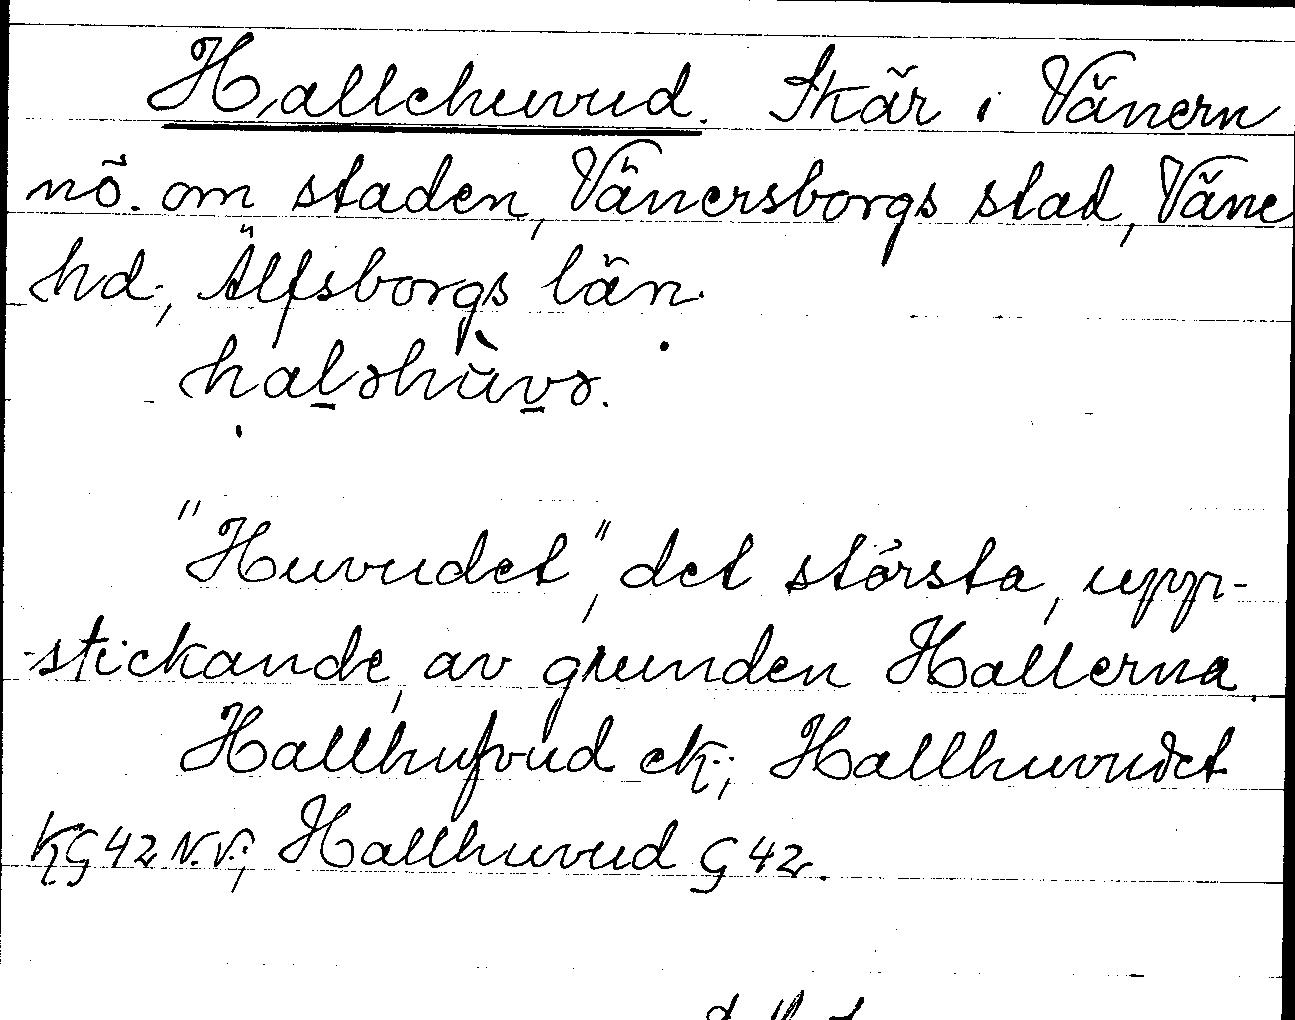 Hallehuvud. Skär i Vänern
nö. om staden, Vänersborgs stad, Väne
hd., Älfsborgs län.
haləhùvə.
"Huvudet", det största, upp-
-stickande, av grunden Hallerna.
Hallhufvud ek.; Hallhuvudet
KG 42 N.V.; Hallhuvud G 42.